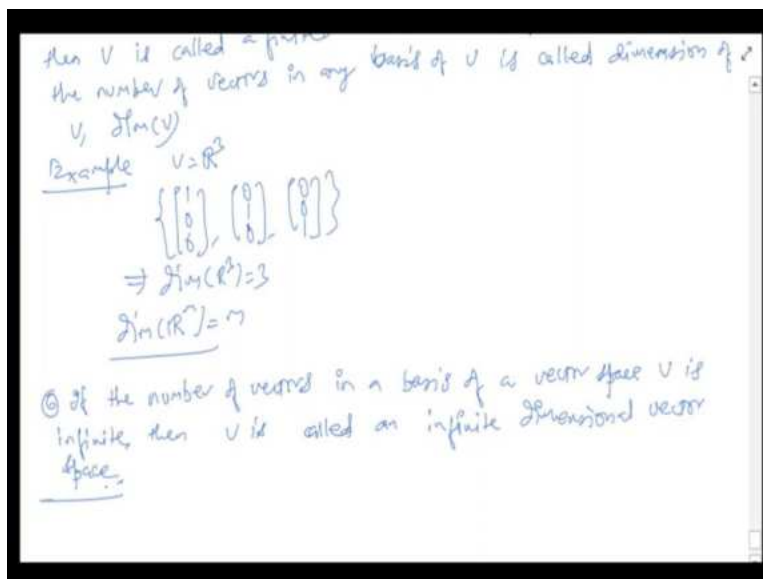 then V is called a
the number of vectors in any basis of V is called dimension of
V, dim(V)
Example V = R³
{[1 0 0], [0 1 0], [0 0 1]}
⇒ dim(R³) = 3
dim(Rⁿ) = n
⑥ If the number of vectors in a basis of a vector space V is
infinite, then V is called an infinite dimensional vector
space.